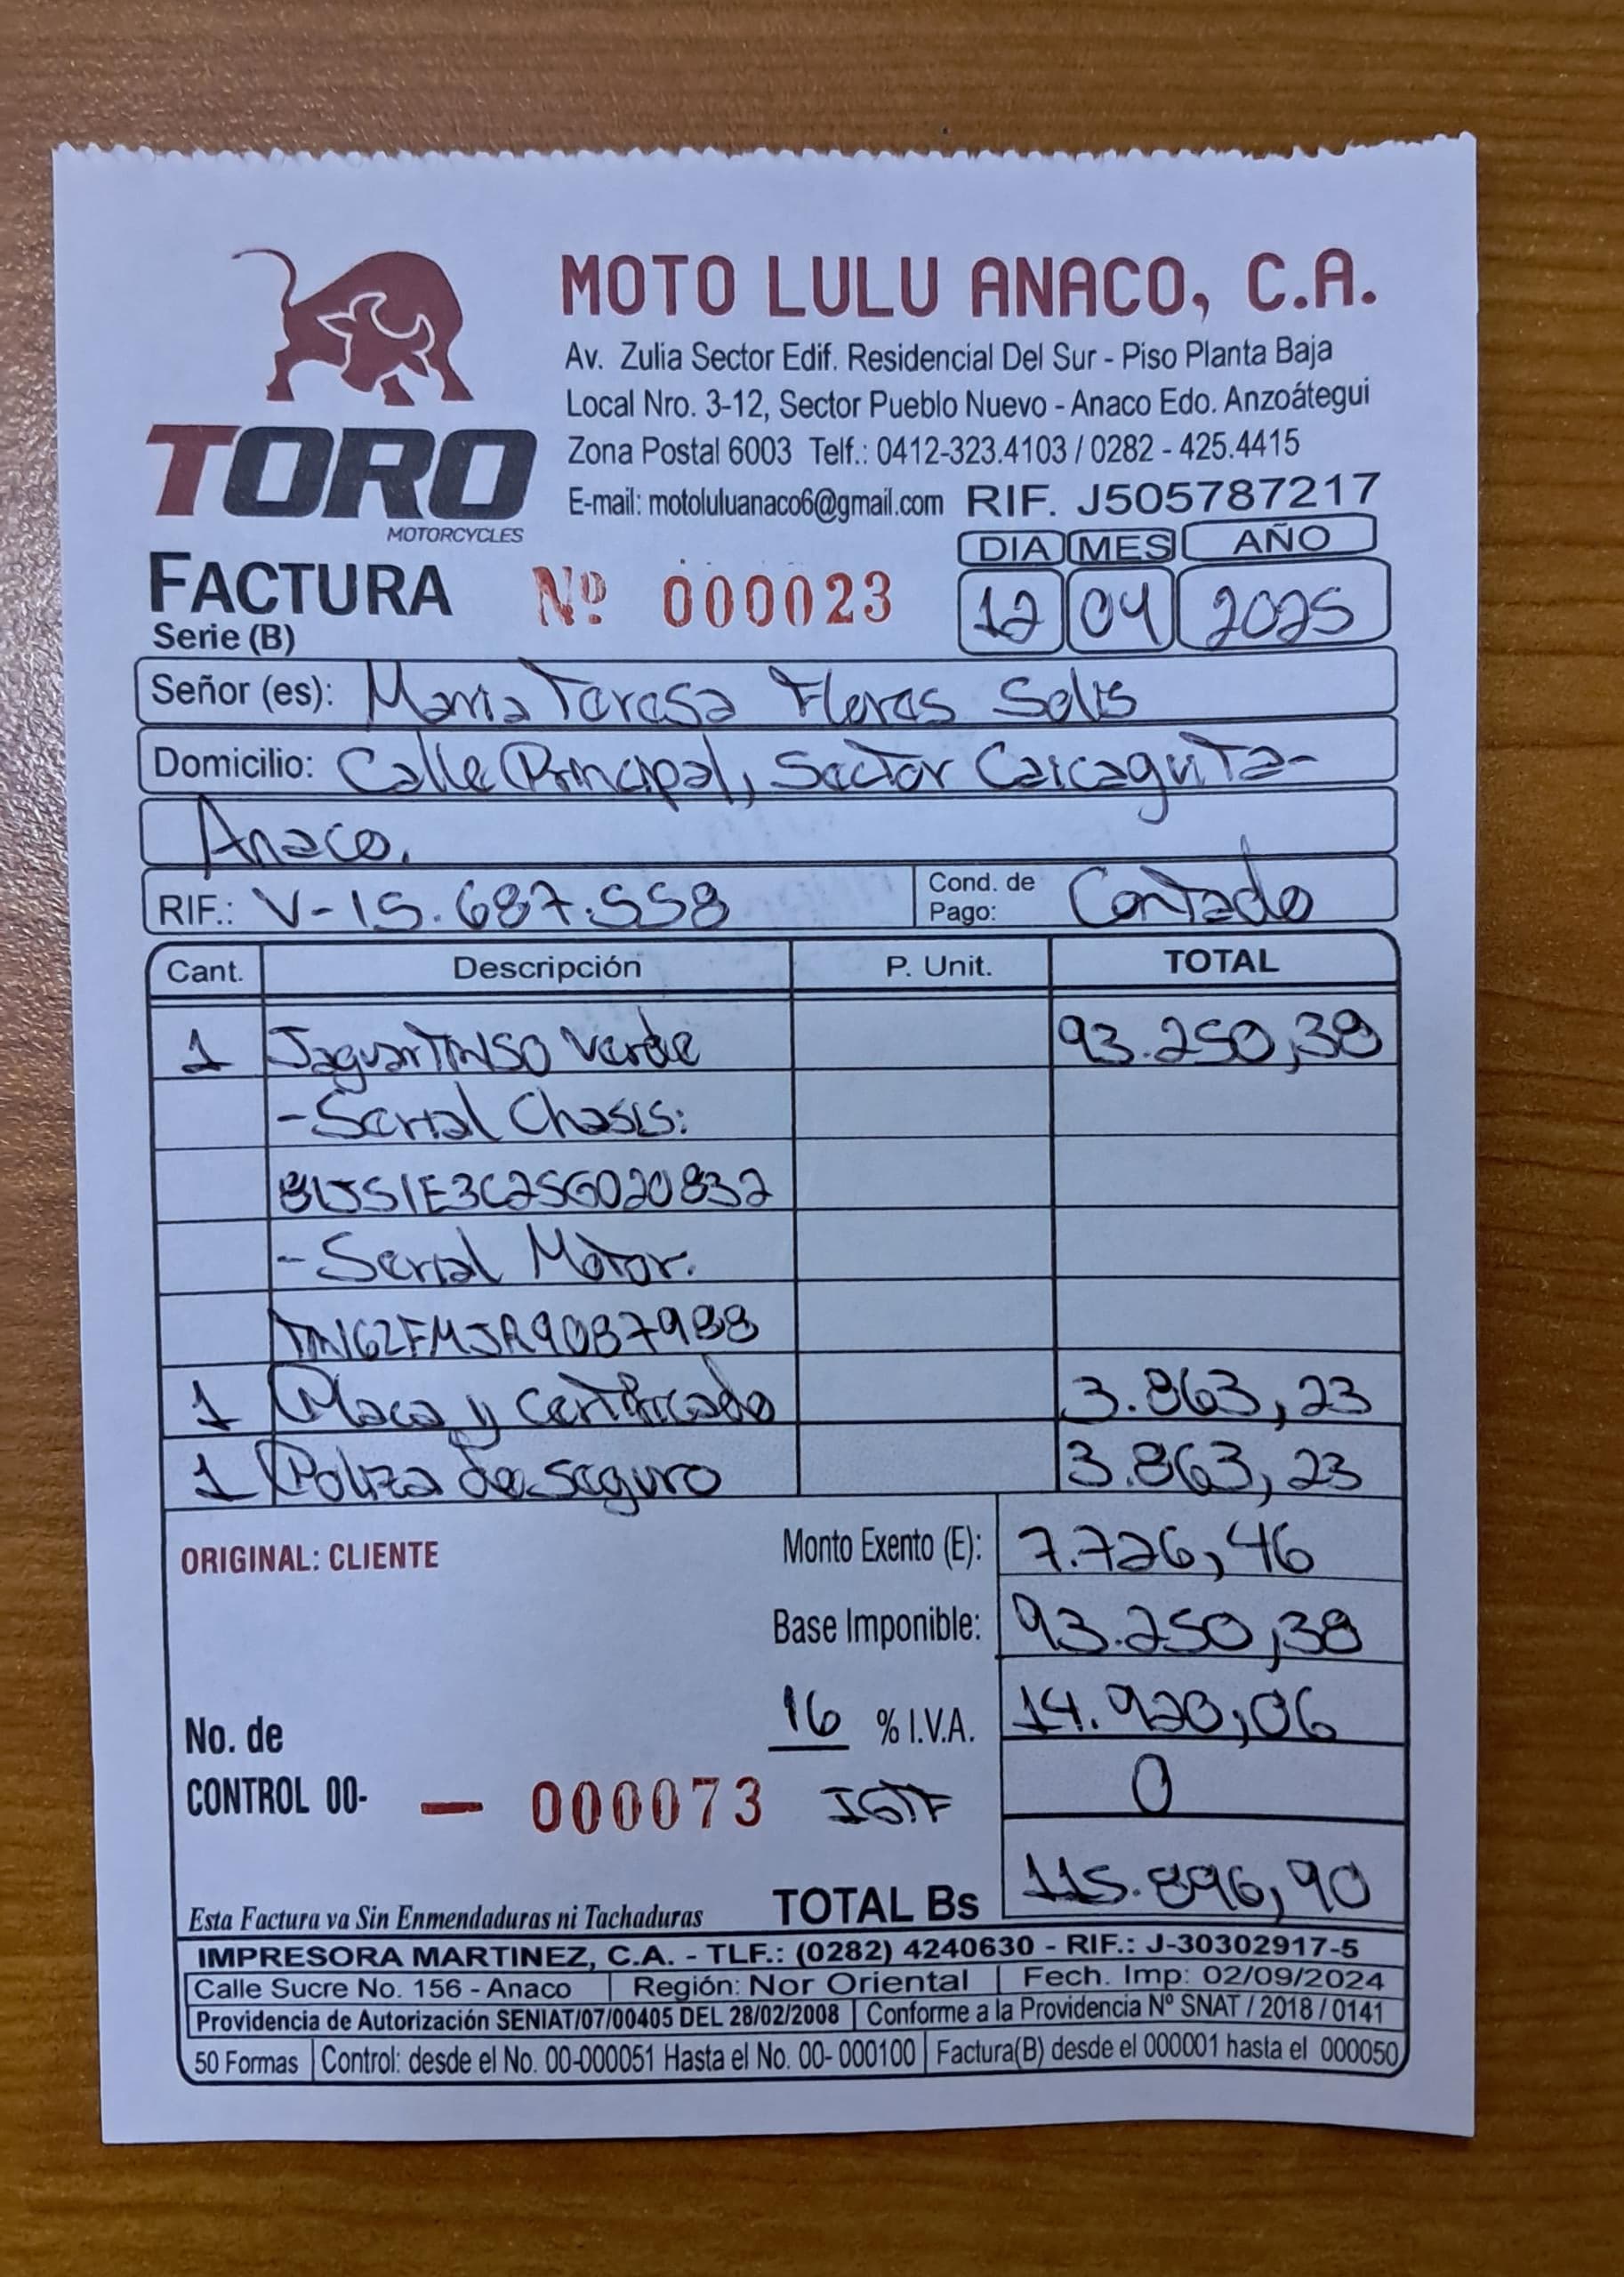 MOTO LULU ANACO, C.A.
Av. Zulia Sector Edif. Residencial Del Sur - Piso Planta Baja
Local Nro. 3-12, Sector Pueblo Nuevo - Anaco Edo. Anzoátegui
Zona Postal 6003 Telf.: 0412-323.4103 / 0282 - 425.4415
E-mail: motoluluanaco6@gmail.com RIF. J505787217
TORO
MOTORCYCLES
DIA MES AÑO
FACTURA Nº 000023 12 04 2025
Serie (B)
Señor (es): Maria Teresa Flores Solis
Domicilio: Calle Principal, Sector Caicaguita-
Anaco.
RIF.: V-15.687.558 Cond. de Pago: Contado
Cant. Descripción P. Unit. TOTAL
1 Jaguar Verde 93.250,38
- Serial Chasis:
- Serial Motor.
1 Placa y certificado 3.863,23
1 Poliza de seguro 3.863,23
ORIGINAL: CLIENTE Monto Exento (E): 7.726,46
Base Imponible: 93.250,38
16 % I.V.A. 14.920,06
No. de
CONTROL 00- — 000073 IGTF 0
Esta Factura va Sin Enmendaduras ni Tachaduras TOTAL Bs 115.896,90
IMPRESORA MARTINEZ, C.A. - TLF.: (0282) 4240630 - RIF.: J-30302917-5
Calle Sucre No. 156 - Anaco Región: Nor Oriental Fech. Imp: 02/09/2024
Providencia de Autorización SENIAT/07/00405 DEL 28/02/2008 Conforme a la Providencia Nº SNAT / 2018 / 0141
50 Formas Control: desde el No. 00-000051 Hasta el No. 00- 000100 Factura(B) desde el 000001 hasta el 000050